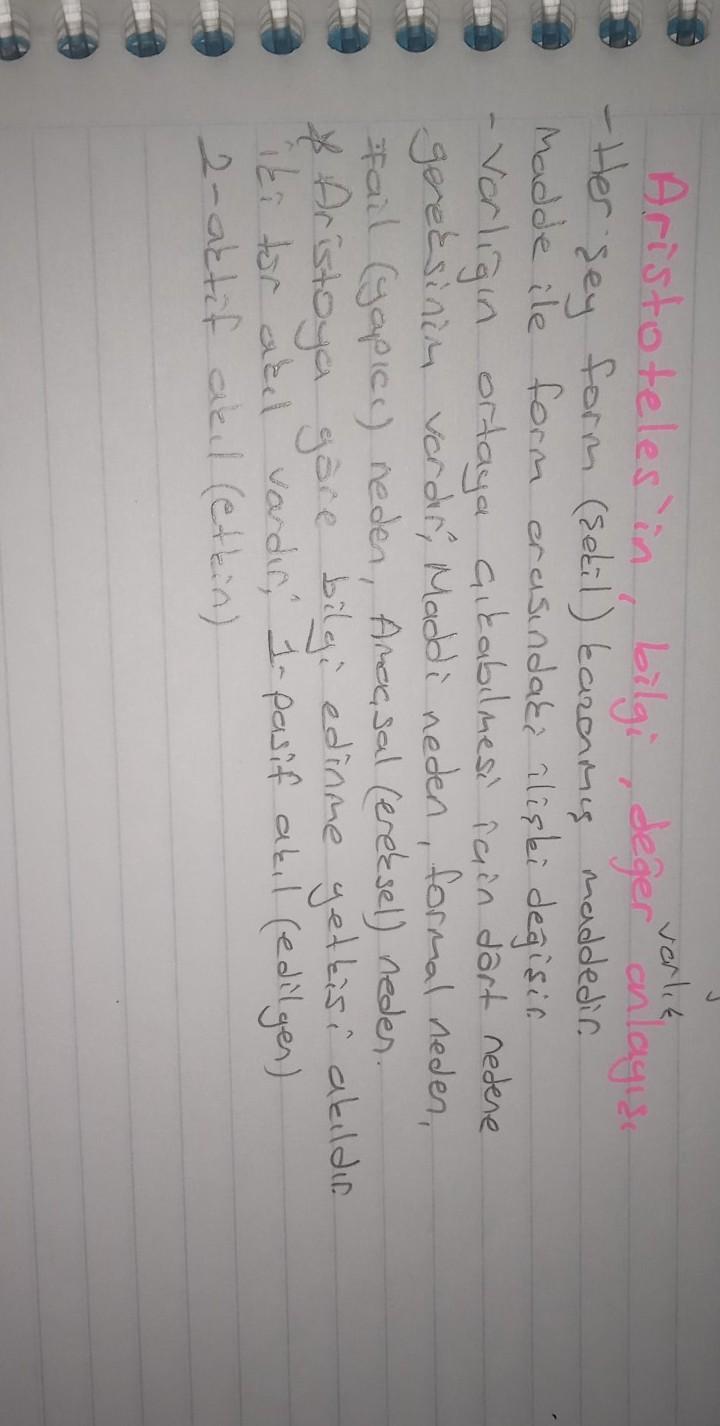 varlık
Aristoteles'in, bilgi, değer anlayışı
- Her şey form (şekil) kazanmış maddedir.
Madde ile form arasındaki ilişki değişir.
- Varlığın ortaya çıkabilmesi için dört nedene
gereksinim vardır; Maddi neden, formal neden,
Fail (yapıcı) neden, Amaçsal (ereksel) neden.
* Aristoya göre bilgi edinme yetkisi akıldır.
iki tür akıl vardır; 1- pasif akıl (edilgen)
2- aktif akıl (etkin)